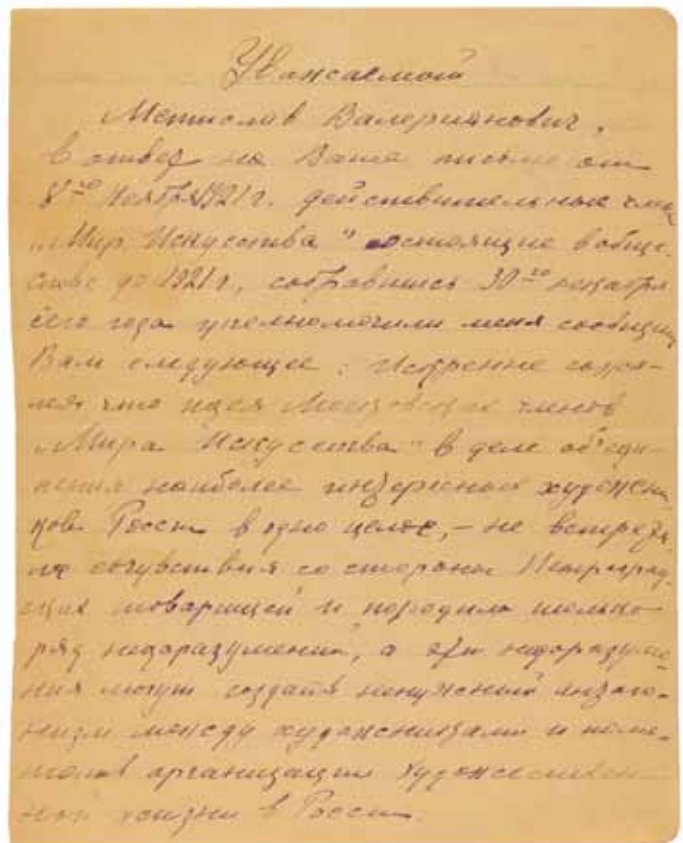 Уважаемый
Мстислав Валерианович,
в ответ на Ваше письмо от
8го Ноября 1921 г. действительные члены
„Мир Искусства" состоящие в обще-
стве до 1921 г., собравшись 30го декабря
сего года уполномочили меня сообщить
Вам следующее: Искренне сожа-
лея что идея Московских членов
„Мира Искусства" в деле объеди-
нения наиболее интересных художни-
ков России в одно целое, – не встрети-
ла сочувствия со стороны Петроград-
ских товарищей и породила только
ряд недоразумений, а эти недоразуме-
ния могут создать ненужный антаго-
низм между художниками и
организации художествен-
ной жизни в России.